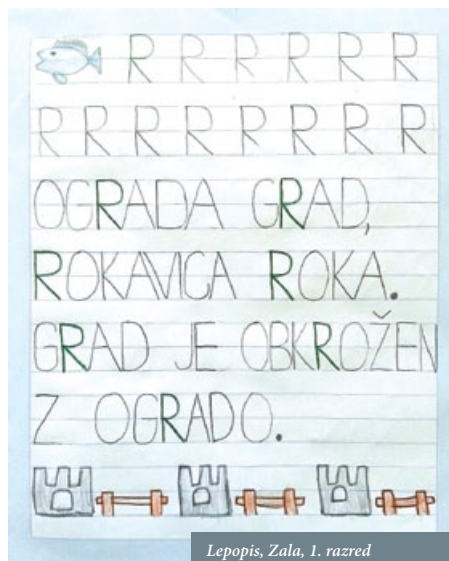 R R R R R R
R R R R R R R R
OGRADA GRAD,
ROKAVICA ROKA.
GRAD JE OBKROŽEN
Z OGRADO.
Lepopis, Zala, 1. razred